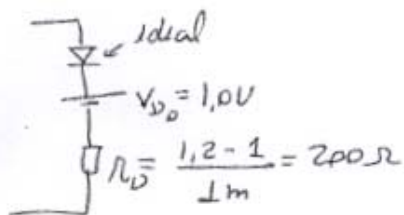 ideal
V_D₀ = 1,0V
R_D = (1,2 - 1)/1m = 200 Ω